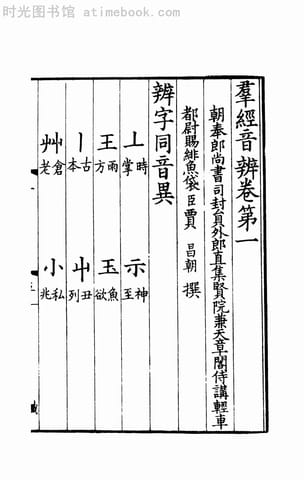 时光图书馆 - atimebook.com
羣經音辨卷第一
朝奉郎尚書司封員外郎直集賢院兼天章閣侍講輕車
都尉賜緋魚袋臣賈昌朝撰
辨字同音異
丄時掌 示神至
王雨方 玉魚欲
丨古本 屮丑列
艸倉老 小私兆